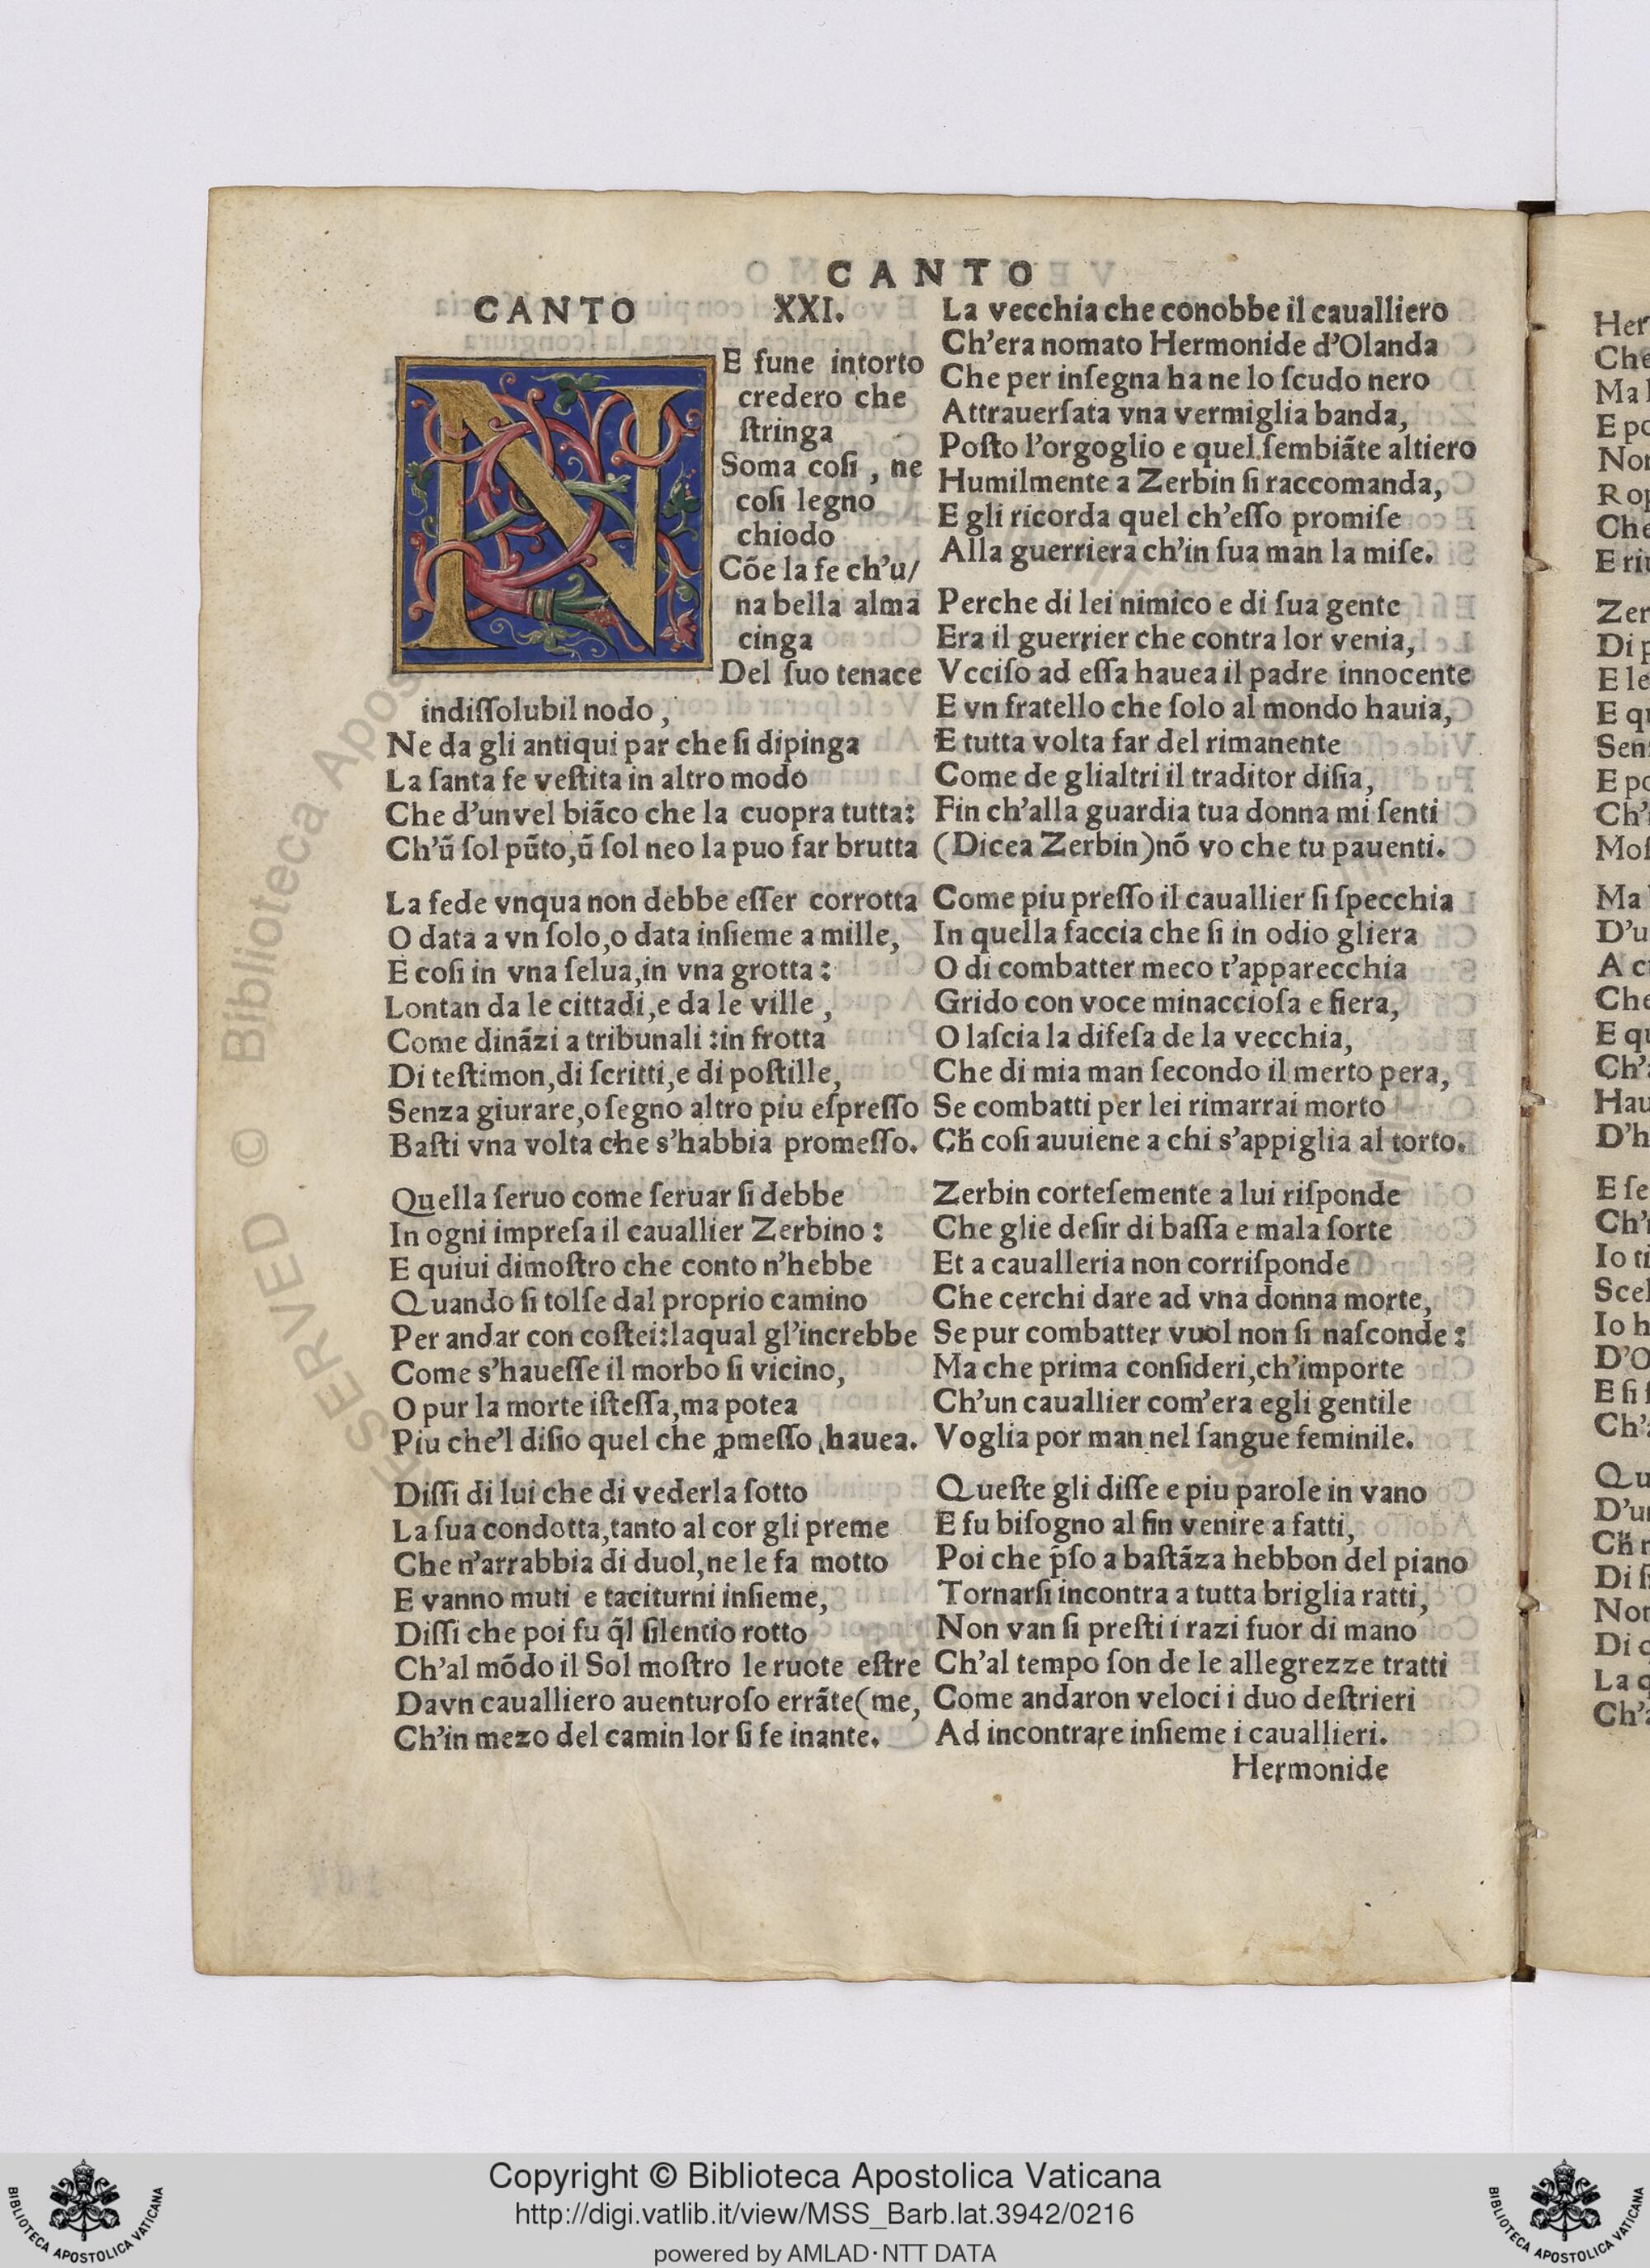 CANTO
CANTO XXI.
NE fune intorto
credero che
ſtringa
Soma coſi , ne
coſi legno
chiodo
Cõe la fe ch'u/
na bella alma
cinga
Del ſuo tenace
indiſſolubil nodo ,
Ne da gli antiqui par che ſi dipinga
La ſanta fe veſtita in altro modo
Che d'unvel biãco che la cuopra tutta:
Ch'ũ ſol pũto,ũ ſol neo la puo far brutta
La fede vnqua non debbe eſſer corrotta
O data a vn ſolo,o data inſieme a mille,
E coſi in vna ſelua,in vna grotta :
Lontan da le cittadi,e da le ville ,
Come dinãzi a tribunali :in frotta
Di teſtimon,di ſcritti,e di poſtille,
Senza giurare,o ſegno altro piu eſpreſſo
Baſti vna volta che s'habbia promeſſo.
Quella ſeruo come ſeruar ſi debbe
In ogni impreſa il cauallier Zerbino :
E quiui dimoſtro che conto n'hebbe
Quando ſi tolſe dal proprio camino
Per andar con coſtei:laqual gl'increbbe
Come s'haueſſe il morbo ſi vicino,
O pur la morte iſteſſa,ma potea
Piu che'l diſio quel che ꝓmeſſo hauea.
Diſſi di lui che di vederla ſotto
La ſua condotta,tanto al cor gli preme
Che n'arrabbia di duol,ne le fa motto
E vanno muti e taciturni inſieme,
Diſſi che poi fu q̃l ſilentio rotto
Ch'al mõdo il Sol moſtro le ruote eſtre
Davn caualliero auenturoſo errãte(me,
Ch'in mezo del camin lor ſi fe inante.
La vecchia che conobbe il caualliero
Ch'era nomato Hermonide d'Olanda
Che per inſegna ha ne lo ſcudo nero
Attrauerſata vna vermiglia banda,
Poſto l'orgoglio e quel ſembiãte altiero
Humilmente a Zerbin ſi raccomanda,
E gli ricorda quel ch'eſſo promiſe
Alla guerriera ch'in ſua man la miſe.
Perche di lei nimico e di ſua gente
Era il guerrier che contra lor venia,
Vcciſo ad eſſa hauea il padre innocente
E vn fratello che ſolo al mondo hauia,
E tutta volta far del rimanente
Come de glialtri il traditor diſia,
Fin ch'alla guardia tua donna mi ſenti
(Dicea Zerbin)nõ vo che tu pauenti.
Come piu preſſo il cauallier ſi ſpecchia
In quella faccia che ſi in odio gliera
O di combatter meco t'apparecchia
Grido con voce minaccioſa e fiera,
O laſcia la difeſa de la vecchia,
Che di mia man ſecondo il merto pera,
Se combatti per lei rimarrai morto
Cħ coſi auuiene a chi s'appiglia al torto.
Zerbin corteſemente a lui riſponde
Che glie deſir di baſſa e mala ſorte
Et a caualleria non corriſponde
Che cerchi dare ad vna donna morte,
Se pur combatter vuol non ſi naſconde :
Ma che prima conſideri,ch'importe
Ch'un cauallier com'era egli gentile
Voglia por man nel ſangue feminile.
Queſte gli diſſe e piu parole in vano
E fu biſogno al fin venire a fatti,
Poi che p̃ſo a baſtãza hebbon del piano
Tornarſi incontra a tutta briglia ratti,
Non van ſi preſti i razi fuor di mano
Ch'al tempo ſon de le allegrezze tratti
Come andaron veloci i duo deſtrieri
Ad incontrare inſieme i cauallieri.
Hermonide
Copyright © Biblioteca Apostolica Vaticana
http://digi.vatlib.it/view/MSS_Barb.lat.3942/0216
powered by AMLAD·NTT DATA
BIBLIOTECA APOSTOLICA VATICANA
BIBLIOTECA APOSTOLICA VATICANA